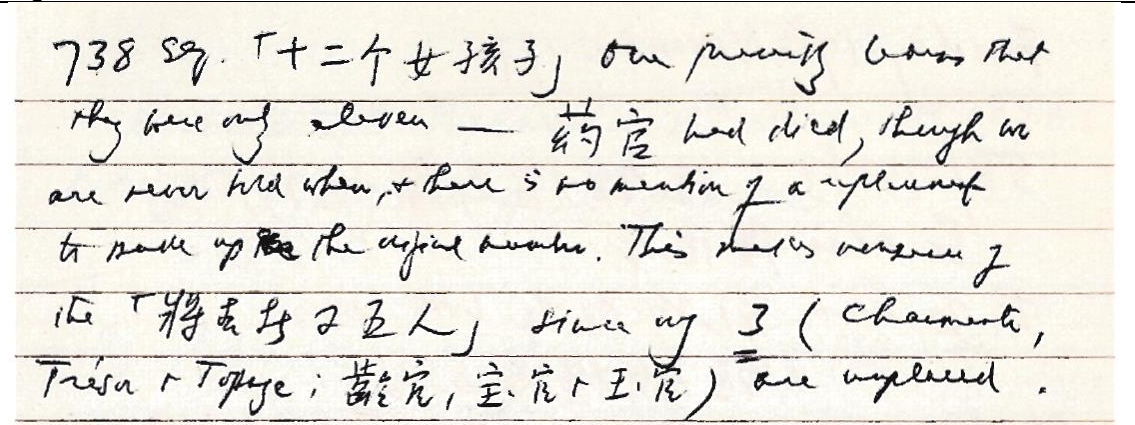 738 sq. 「十二个女孩子」 One presently learns that
they were only eleven — 药官 had died, though we
are never told when, & there is no mention of a replacement
to make up the original number. This makes nonsense of
the 「將去 五人」 since only 3 (Charmante,
Trésor & Topaze; 齡官, 宝官 & 玉官) are unplaced.